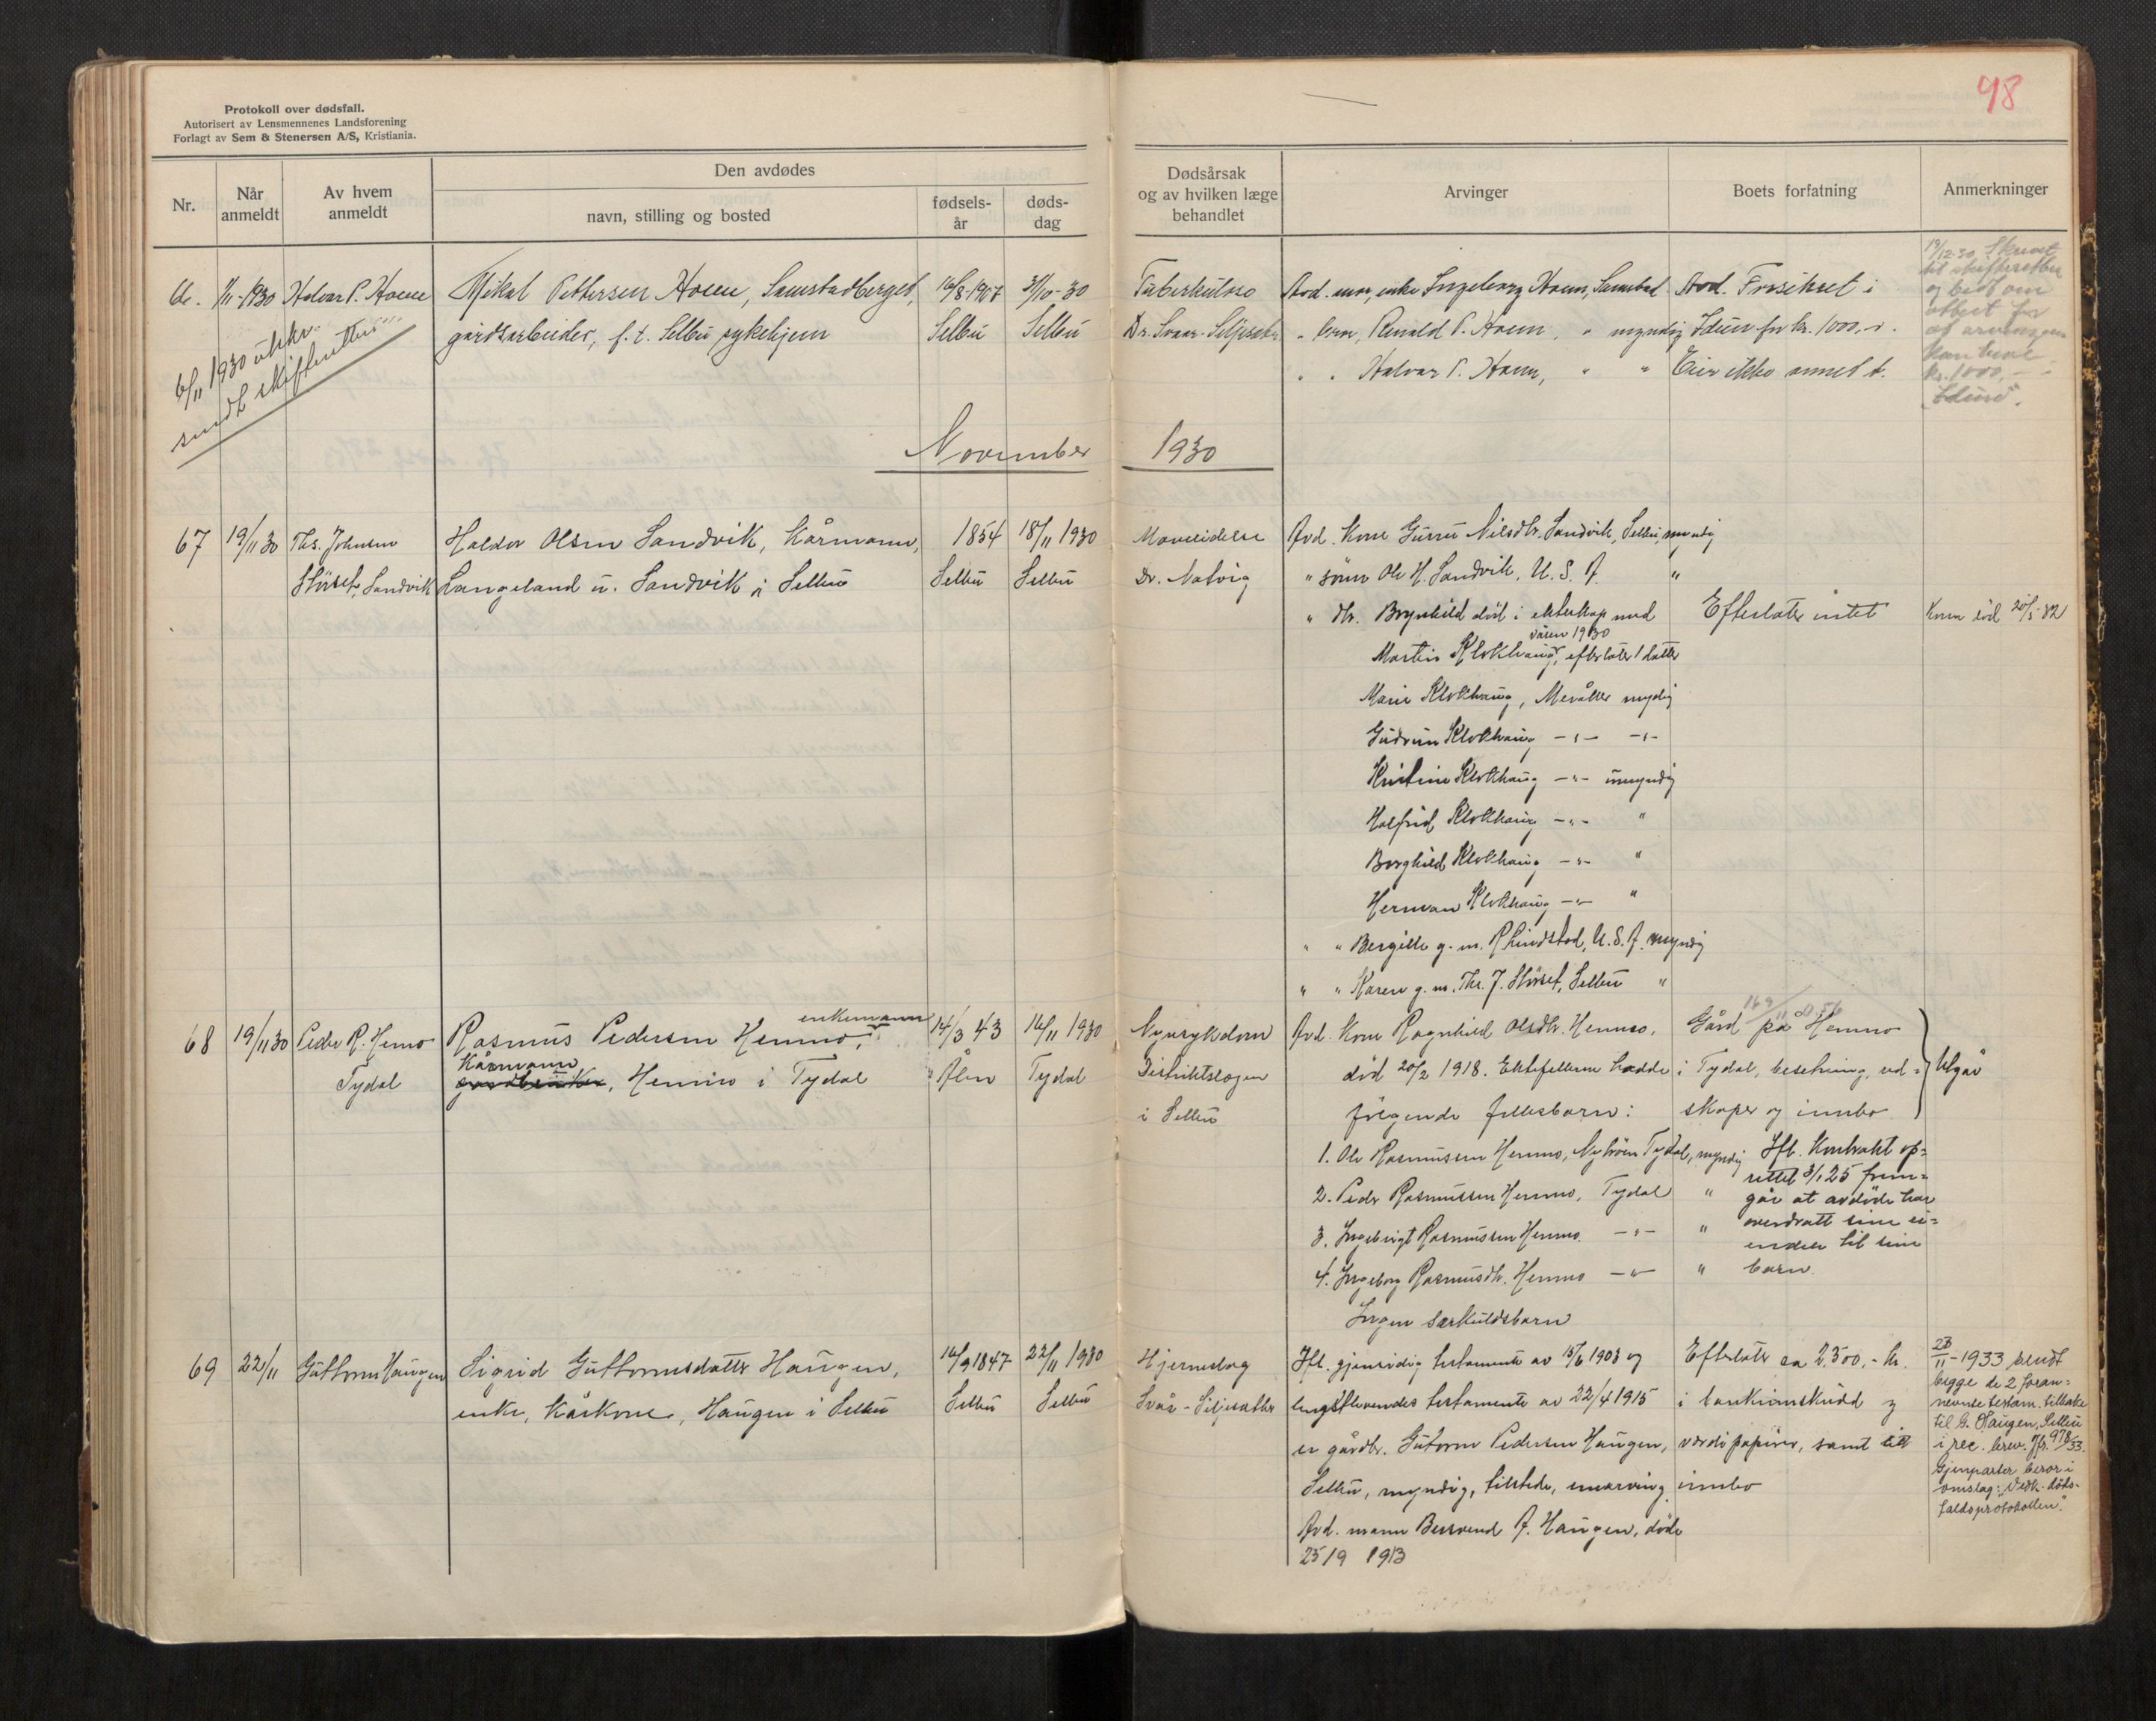 Protokoll over dødsfall.
Autorisert av Lensmennenes Landsforening
Forlagt av Sem & Stenersen A/S, Kristiania.
98
Nr.
Når anmeldt
Av hvem anmeldt
Den avdødes
navn, stilling og bosted
fødsels-år
døds-dag
Dødsårsak og av hvilken læge behandlet
Arvinger
Boets forfatning
Anmerkninger
1/11-1930 Halvar P. Hoem
Mikal Pettersen Hoem, Samstadberget, 16/8-1907 31/10-30
gårdsarbeider, f.t. Selbu sykehjem Selbu Selbu
6/11 1930 utskr.
sendt skifteretten
Tuberkulose
Dr. Svaar-Seljesæter
Avd. mor, enke Ingeborg Hoem, Samstad
" bror, Renald P. Hoem, " myndig
" " Halvar P. Hoem, " "
Avd. Forsikret i
Idun for kr. 1000.-
Eier ikke annet
19/12-30. Skrevet
til skifteretten
og bedt om
attest for
at arvingen
kan heve
kr. 1000,-
"Idun".
November 1930
67 19/11 30 Ths. Johnsen
Störset, Sandvik
Haldor Olsen Sandvik, Kårmann, 1854 18/11 1930
Langeland u. Sandvik i Selbu Selbu Selbu
Mavelidelse
Dr. Natvig
Avd. Kone Gurru Nilsdtr. Sandvik, Selbu, myndig
" sönn Ole H. Sandvik, U.S.A. "
" dtr. Brynhild död i ekteskap med
våren 1930
Martin Klokhaug, efterlater 1 datter
Marie Klokhaug, Meråker myndig
Gudrun Klokhaug -"- -"-
Kristine Klokhaug -"- umyndig
Halfrid Klokhaug -"- "
Borghild Klokhaug -"- "
Herman Klokhaug -"- "
" " Bergitte g. m. R Lindstad, U.S.A. myndig
" " Karen g. m. Ths. J. Störset, Selbu "
Efterlater intet
Kona död 20/5-32
68 19/11 30 Peder R. Henmo
Tydal
enkemann
Rasmus Pedersen Henmo, 14/3 43 16/11 1930
Kårmann
gårdbruker, Henmo i Tydal Ålen Tydal
Nyresykdom
Distriktslægen
i Selbu
Avd. Kone Ragnhild Olsdtr. Henmo,
död 20/2 1918. Ektefellerne hadde
fölgende fellesbarn:
1. Ole Rasmussen Henmo, Nyhröen Tydal, myndig
2. Peder Rasmussen Henmo, Tydal "
3. Ingebrigt Rasmussen Henmo -"- "
4. Ingeborg Rasmusdtr. Henmo -"- "
Ingen særkuldsbarn
Gård på Henmo
i Tydal, besetning, red-
skaper og innbo
Utgår
Ifl. Kontrakt op-
rettet 3/1 25 frem-
går at avdöde har
overdratt sine ei-
endele til sine
barn.
69 22/11 Guttorm Haugen
Sigrid Guttormsdatter Haugen, 16/9 1847 22/11 1930
enke, Kårkone, Haugen i Selbu Selbu Selbu
Hjerneslag
Svår-Seljesæther
Ifl. gjensidig testamente av 15/6 1903 og
lengstlevendes testamente av 22/4 1915
er gårdbr. Guttorm Pedersen Haugen,
Selbu, myndig, tilstede, enearving.
Avd. mann Bersvend A. Haugen, döde
25/9 1913
Efterlater ca 2,500,- kr.
i bankinnskudd og
værdipapirer, samt litt
innbo
23/11-1933 sendt
begge de 2 foran-
nevnte testam. tilbake
til G. Haugen, Selbu
i rec. brev. Jfr. 978/33.
Gjenparter beror i
omslag: "Vedk. döds-
faldsprotokollen".